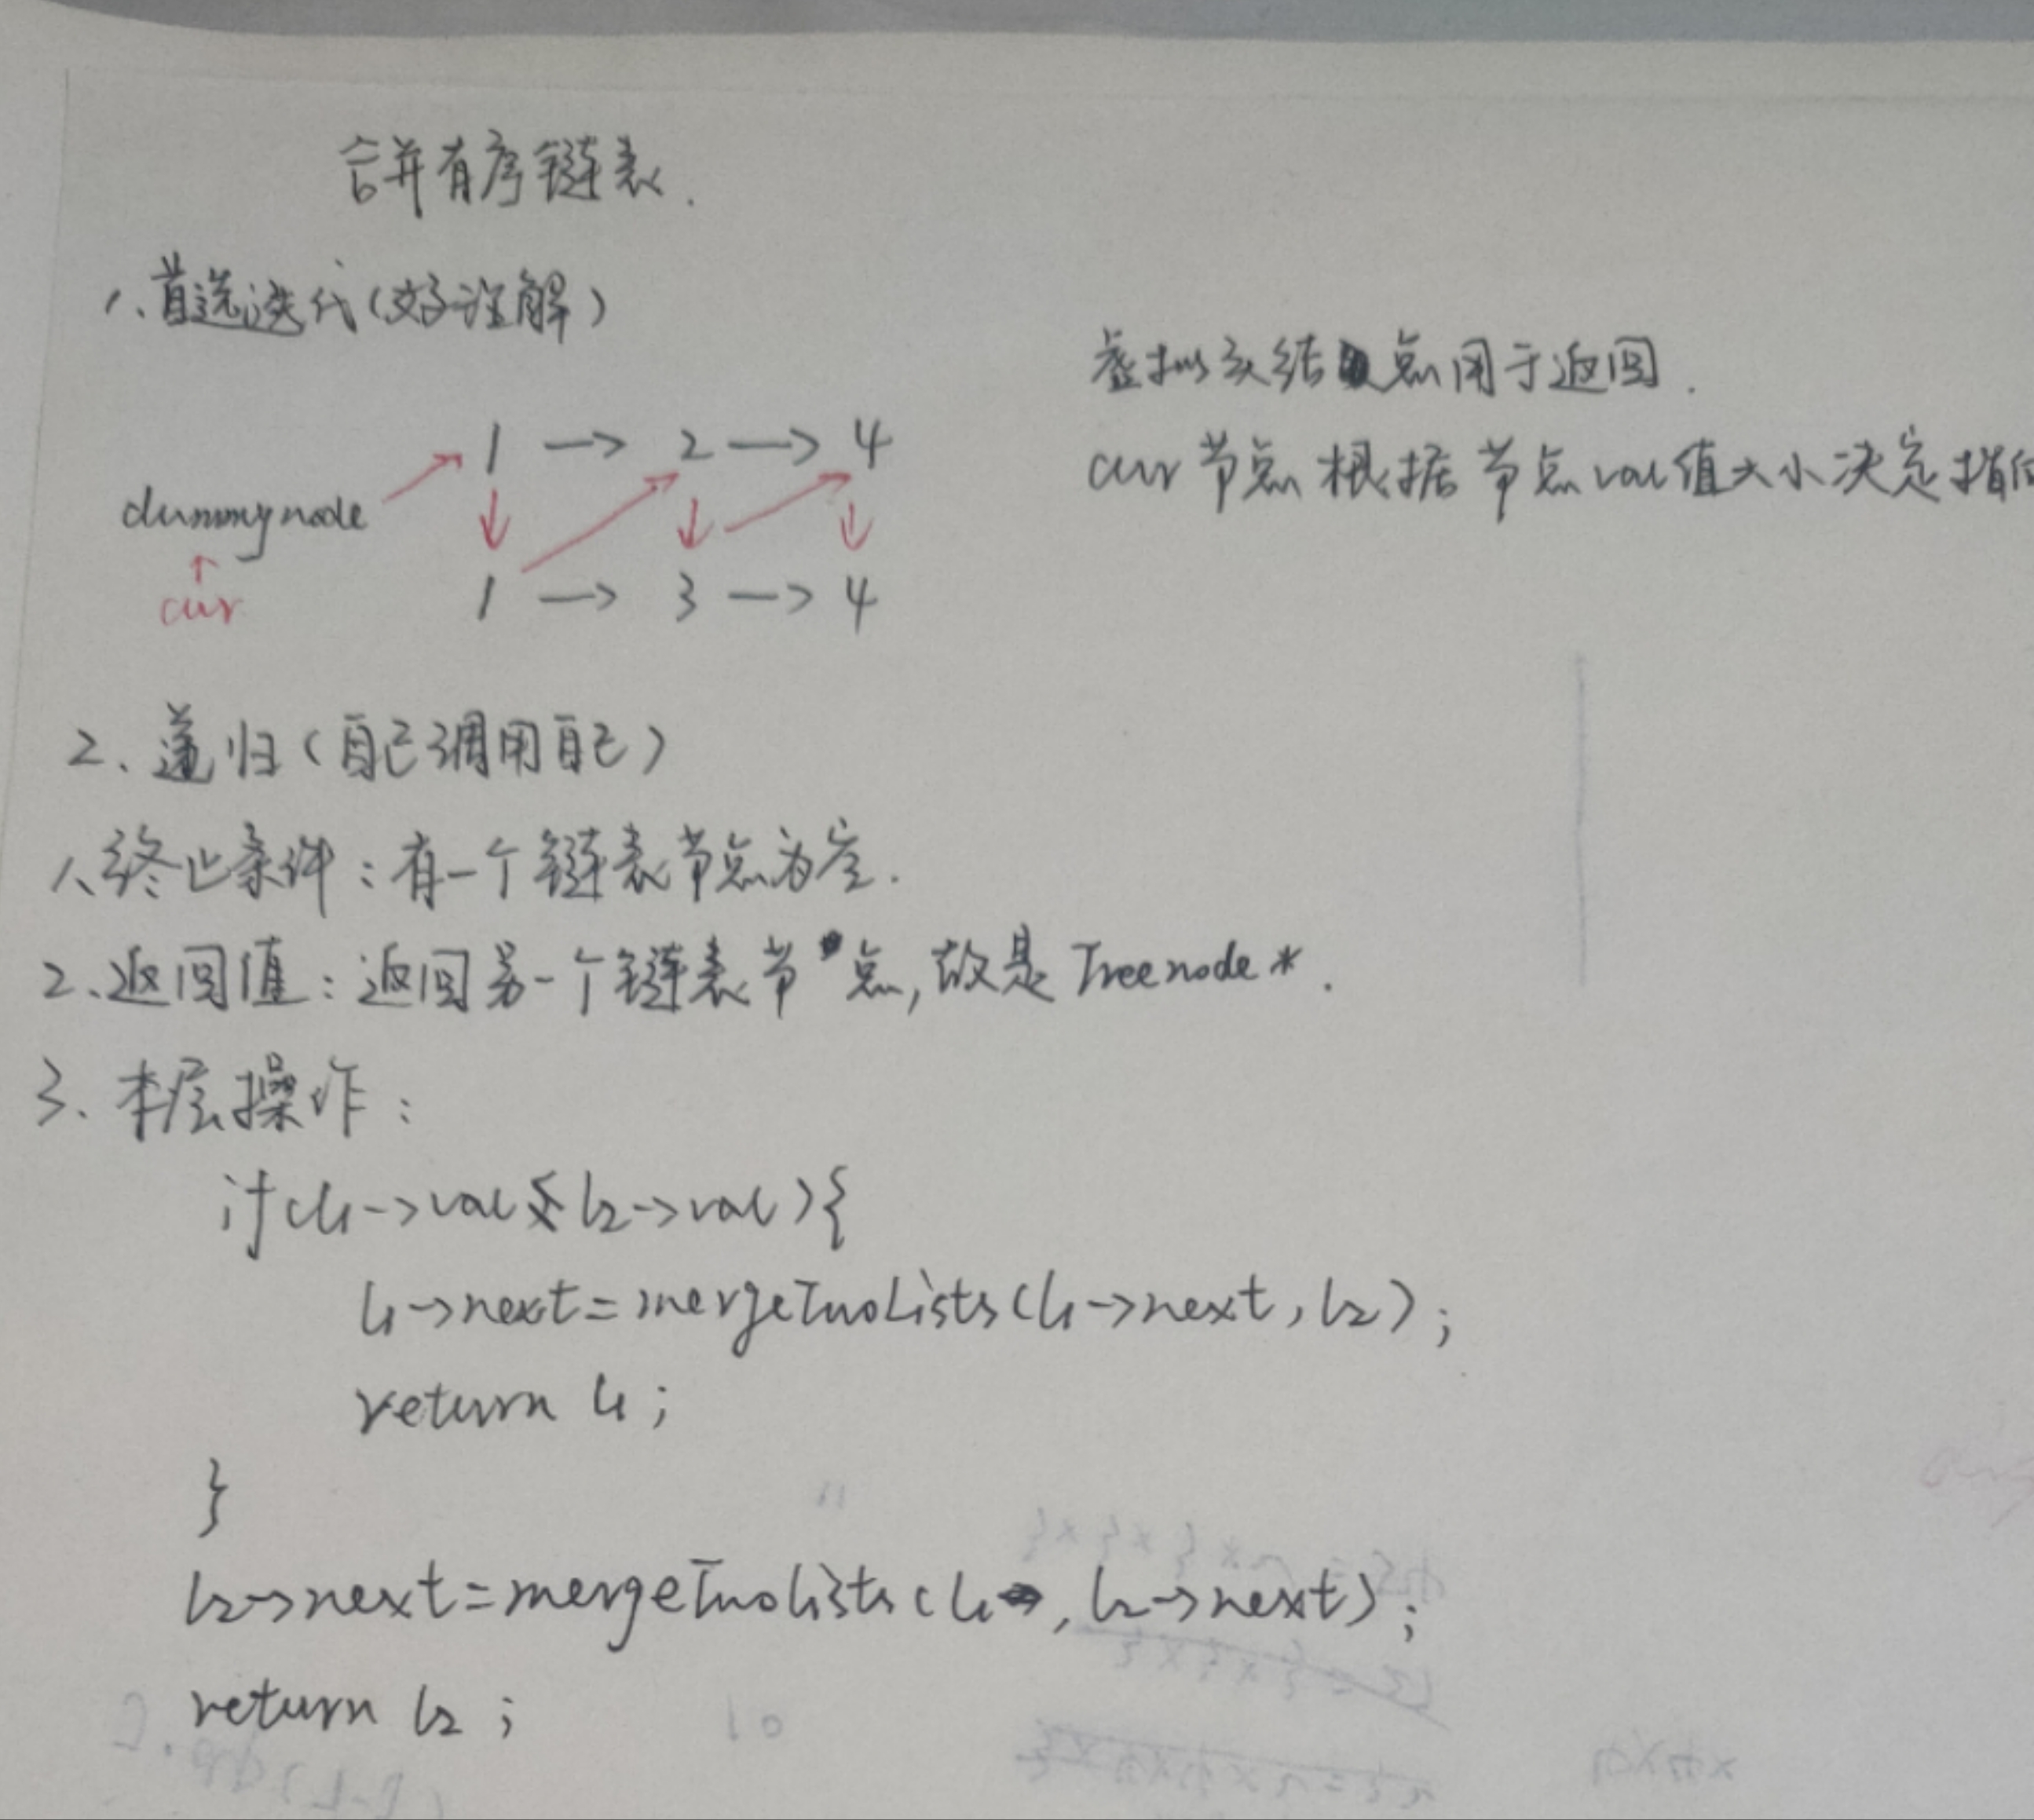 合并有序链表.
1、首选迭代(好理解)
虚拟头结点用于返回.
cur节点根据节点val值大小决定指向
1 -> 2 -> 4
dummynode
cur
1 -> 3 -> 4
2、递归(自己调用自己)
1、终止条件:有一个链表节点为空.
2、返回值:返回另一个链表节点,故是Treenode*.
3、本层操作:
if(l1->val < l2->val){
l1->next=mergeTwoLists(l1->next,l2);
return l1;
}
l2->next=mergeTwoLists(l1,l2->next);
return l2;